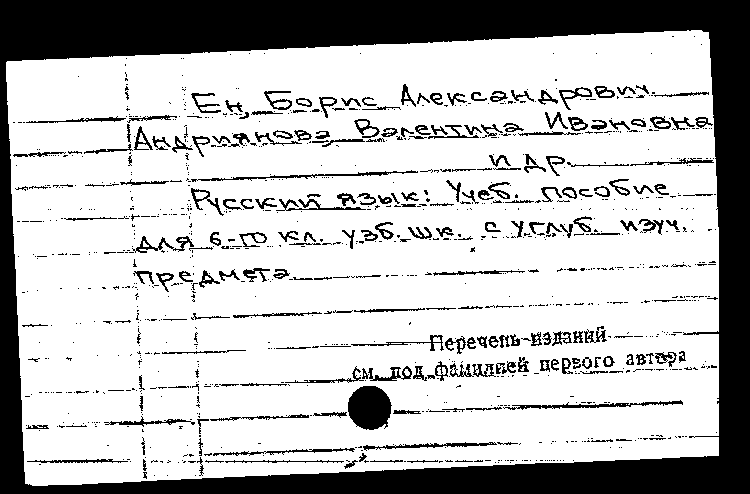 Ен, Борис Александрович.
Андриянова, Валентина Ивановна
и др.
Русский язык: Учеб. пособие
для 6-го кл. узб. шк. с углуб. изуч.
предмета
Перечень изданий
см. под фамилией первого автора